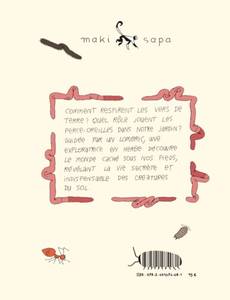 maki sapa
COMMENT RESPIRENT LES VERS DE
TERRE? QUEL RÔLE JOUENT LES
PERCE-OREILLES DANS NOTRE JARDIN?
GUIDÉE PAR UN LOMBRIC, UNE
EXPLORATRICE EN HERBE DÉCOUVRE
LE MONDE CACHÉ SOUS NOS PIEDS,
RÉVÉLANT LA VIE SECRÈTE ET
INDISPENSABLE DES CRÉATURES
DU SOL.
ISBN
15 €